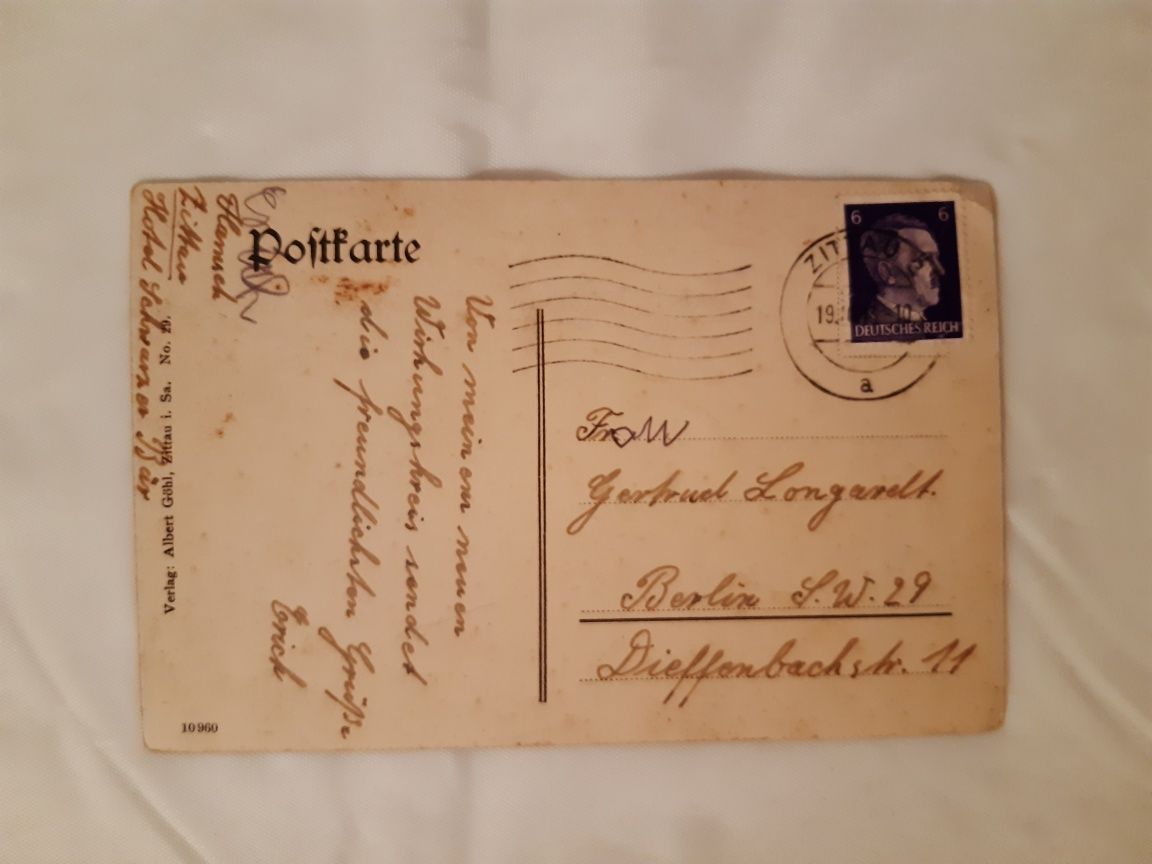 Postkarte
Hamsch
Zittau
Hotel Schwarzer Bär
Von meinem neuen
Wirkungskreis sendet
die freundlichsten Grüße
Erich
Verlag: Albert Göbl, Zittau i. Sa. No. 29.
10960
6 6
DEUTSCHES REICH
ZITTAU
19. 10
a
Frau
Gertrud Longardt.
Berlin S.W. 29
Dieffenbachstr. 11